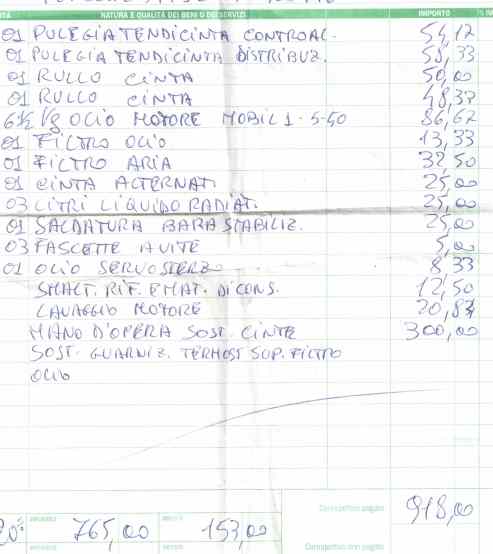 NATURA E QUALITÀ DEI BENI O DEI SERVIZI IMPORTO
01 PULEGIA TENDICINTA CONTROAL. 54,12
01 PULEGIA TENDICINTA DISTRIBUZ. 58,33
01 RULLO CINTA 50,00
01 RULLO CINTA 48,37
6½ Kg OLIO MOTORE MOBIL 1 - 5-50 86,62
01 FILTRO OLIO 13,33
01 FILTRO ARIA 32,50
01 CINTA ALTERNAT. 25,00
03 LITRI LIQUIDO RADIAT. 25,00
01 SALDATURA BARA STABILIZ. 25,00
03 FASCETTE A VITE 5,00
01 OLIO SERVOSTERZO 8,33
SMALT. RIF. EMAT. DI CONS. 12,50
LAVAGGIO MOTORE 20,84
MANO D'OPERA SOST. CINTE 300,00
SOST. GUARNIZ. TERMOST SUP. FILTRO
OLIO
Corrispettivo pagato 918,00
20% 765,00 153,00
Corrispettivo non pagato